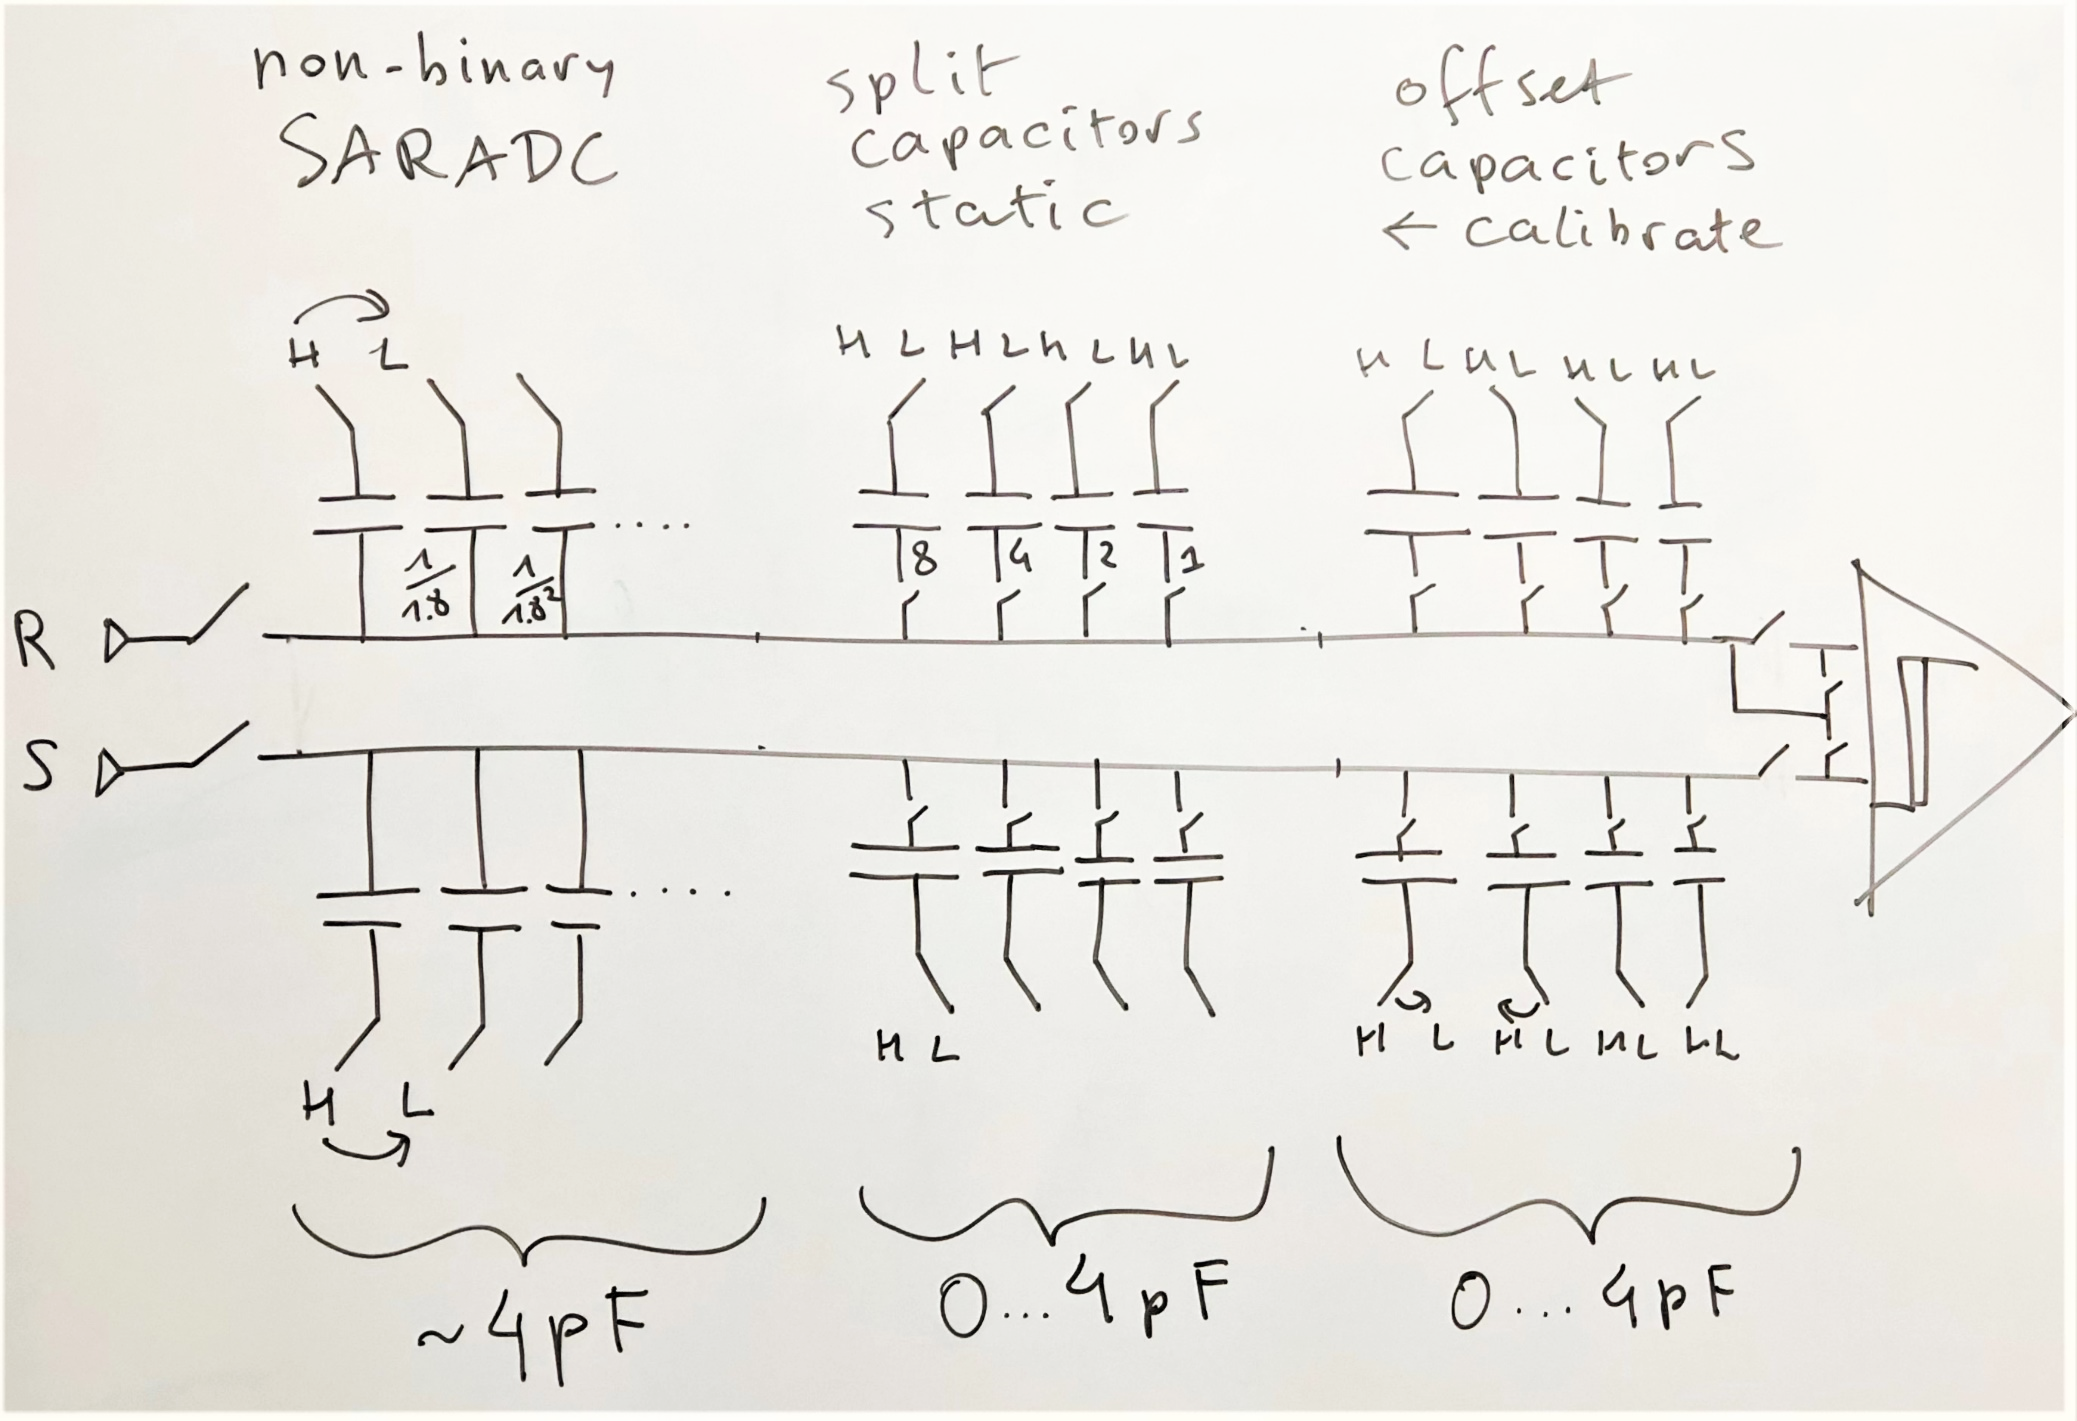 non-binary
SARADC
split
capacitors
static
offset
capacitors
← calibrate
H L
H L H L H L H L
H L H L H L H L
1/1.8 1/1.8²
8 4 2 1
R
S
H L
H L
H L H L H L H L
~4pF
0...4pF
0...4pF